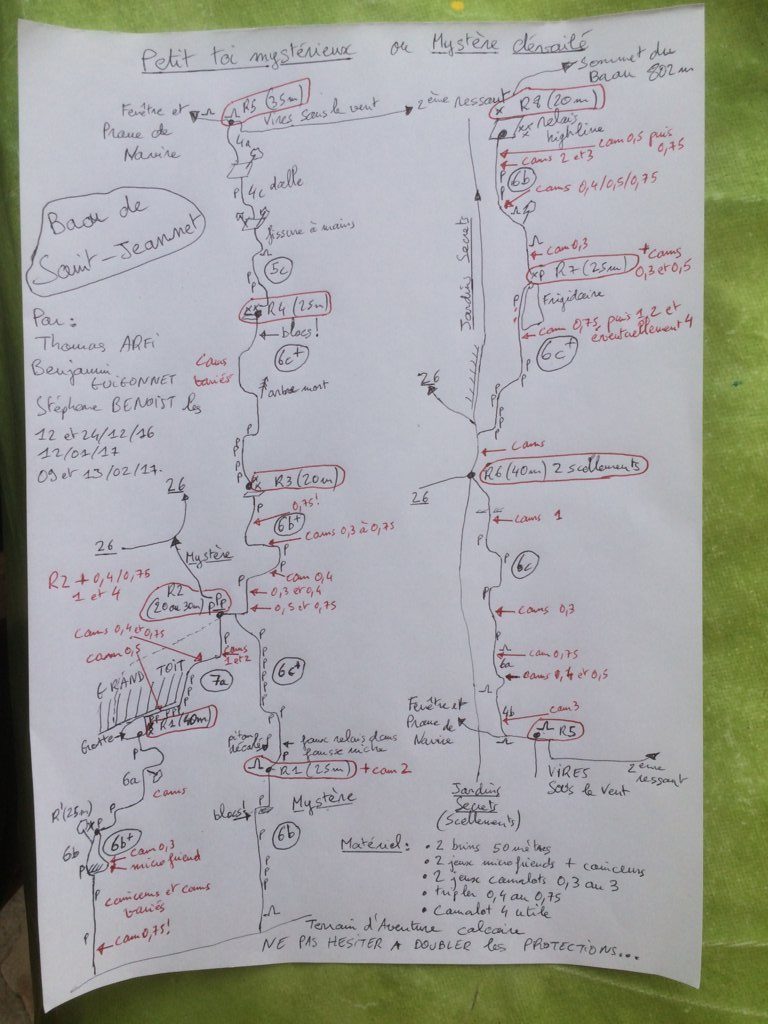 Petit toi mystérieux ou Mystère dévoilé
Sommet du
Baou 802 m
Fenêtre et
Proue de
Navire
R5 (35m)
Vires sous le vent
2ème ressaut
R8 (20m)
relais
highline
cams 0,5 puis
0,75
cams 2 et 3
6b
cams 0,4/0,5/0,75
4a
4c dalle
fissure à mains
5c
Baou de
Saint-Jeannet
R4 (25m)
blocs!
6c+
Cams
variés
arbre mort
Par:
Thomas ARFI
Benjamin
GUIGONNET
Stéphane BENOIST les
12 et 24/12/16
12/01/17
09 et 13/02/17.
Jardins Secrets
cam 0,3
R7 (25m)
+ cams
0,3 et 0,5
Frigidaire
cam 0,75 puis 1, 2 et
éventuellement 4
6c+
26
cams
R6 (40m) 2 scellements
26
cams 1
6c
cams 0,3
cam 0,75
6a
cams 0,4 et 0,5
cam 3
4b
Fenêtre et
Proue de
Navire
R5
VIRES
Sous le Vent
2ème
ressaut
Jardins
Secrets
(Scellements)
R3 (20m)
0,75!
6b+
cams 0,3 à 0,75
cam 0,4
0,3 et 0,4
0,5 et 0,75
26
26
Mystère
R2 + 0,4/0,75
1 et 4
R2
(20 ou 30m)
cams 0,4 et 0,75
cam 0,5
cams
1 et 2
7a
GRAND TOIT
R1 (40m)
Grotte
6a
cams
R'(25m)
6b
6b+
cam 0,3
microfriend
coinceurs et cams
variés
cam 0,75!
6c+
piton
recalé
faux relais dans
fausse niche
R1 (25m) + cam 2
blocs!
Mystère
6b
Matériel:
• 2 brins 50 mètres
• 2 jeux microfriends + coinceurs
• 2 jeux camalots 0,3 au 3
• tripler 0,4 au 0,75
• Camalot 4 utile
Terrain d'Aventure calcaire
NE PAS HESITER A DOUBLER les PROTECTIONS...